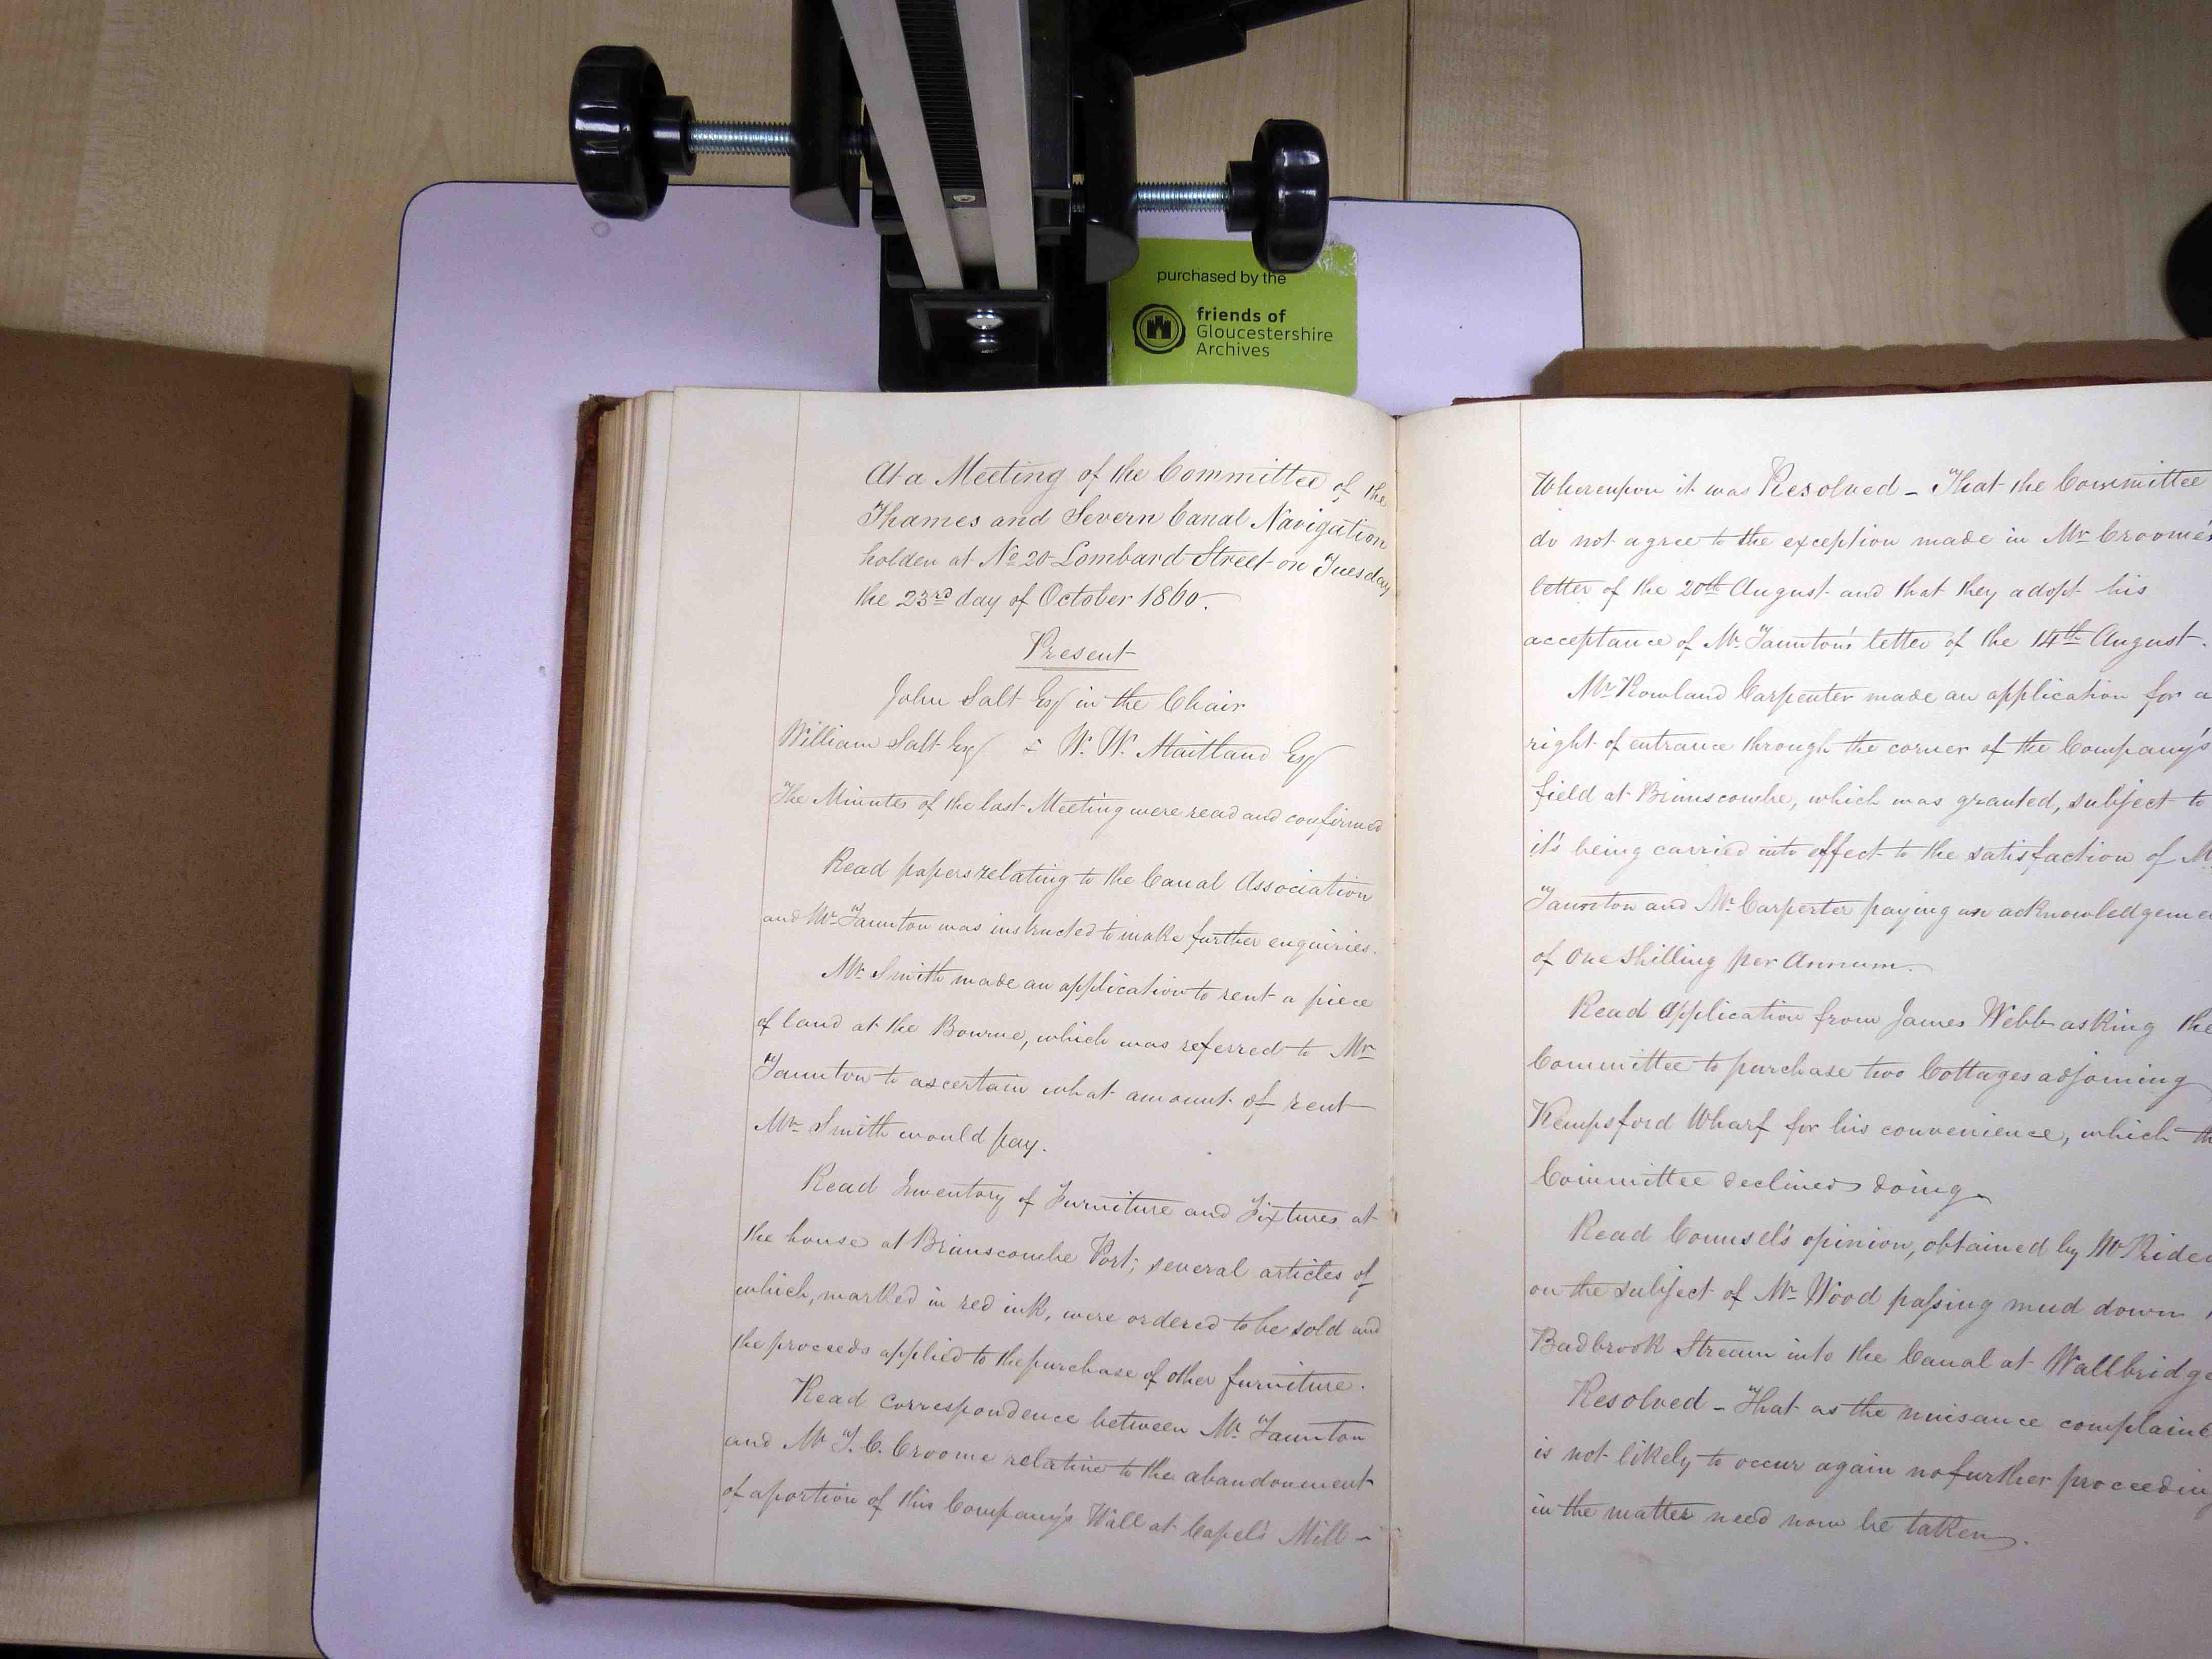 purchased by the
friends of
Gloucestershire
Archives
At a Meeting of the Committee of the
Thames and Severn Canal Navigation
holden at No 20 Lombard Street on Tuesday
the 23rd day of October 1860.
Present
John Salt Esq in the Chair
William Salt Esq & W. W. Maitland Esq
The Minutes of the last Meeting were read and confirmed
Read papers relating to the Canal Association
and Mr Taunton was instructed to make further enquiries.
Mr Smith made an application to rent a piece
of land at the Bourne, which was referred to Mr
Taunton to ascertain what amount of rent
Mr Smith would pay.
Read Inventory of Furniture and Fixtures at
the house at Brimscombe Port; several articles of
which, marked in red ink, were ordered to be sold and
the proceeds applied to the purchase of other furniture.
Read correspondence between Mr Taunton
and Mr T. C. Croome relative to the abandonment
of a portion of this Company's Wall at Capel's Mill –
Whereupon it was Resolved – That the Committee
do not agree to the exception made in Mr Croome's
letter of the 20th August and that they adopt his
acceptance of Mr Taunton's letter of the 14th August.
Mr Rowland Carpenter made an application for a
right of entrance through the corner of the Company's
field at Brimscombe, which was granted, subject to
it's being carried into effect to the satisfaction of M
Taunton and Mr Carpenter paying an acknowledgeme
of One Shilling per Annum.
Read Application from James Webb asking the
Committee to purchase two Cottages adjoining
Kempsford Wharf for his convenience, which th
Committee declined doing.
Read Counsel's opinion, obtained by Mr
on the subject of Mr Wood passing mud down
Badbrook Stream into the Canal at Wallbridge
Resolved – That as the nuisance complaine
is not likely to occur again no further proceedin
in the matter need now be taken.